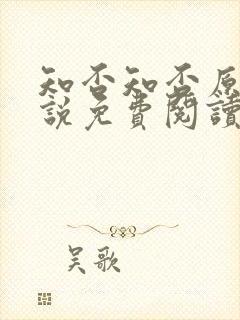 知否知否原
說免費閱讀
吴歌